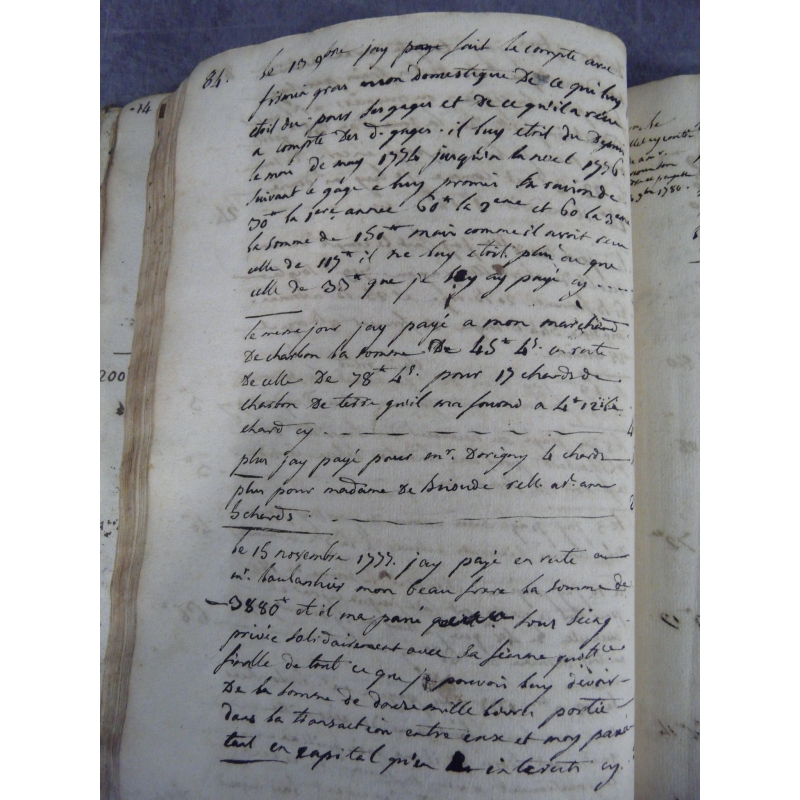 84.
le 13 9bre jay payé fait le compte avec
firmin gras mon domestique De ce qui luy
etoit du pour ses gages et de ce qu'il a recu
a compte Des d. gages. il luy etoit du Depuis
le mois de may 1774 jusqu'a la noel 1776.
suivant le gage a luy promis En raison de
30# la 1ere année 60# la 2eme et 60 la 3eme
la somme de 150# mais comme il avoit recu
celle de 117# il ne luy etoit plus du que
celle de 33# que je luy ay payé cy
le meme jour jay payé a mon marchand
De charbon la somme De 45# 4s. en reste
De celle De 78# 4s. pour 17 chards de
charbon De terre qu'il ma fourni a 4# 12s le
chard cy
plus jay payé pour mr. Dorigny 4 chards
plus pour madame De Brioude celle
5 chards
le 15 novembre 1777. jay payé en reste a
mr. mon beau frere la somme de
3880# et il ma passé sous seing
privée solidairement avec sa femme quittance
finalle de tout ce que je pouvois luy devoir
De la somme de douze mille livres portée
dans la transaction entre eux et moy passée
tant en capital qu'en interets cy.
-14
200
1780.